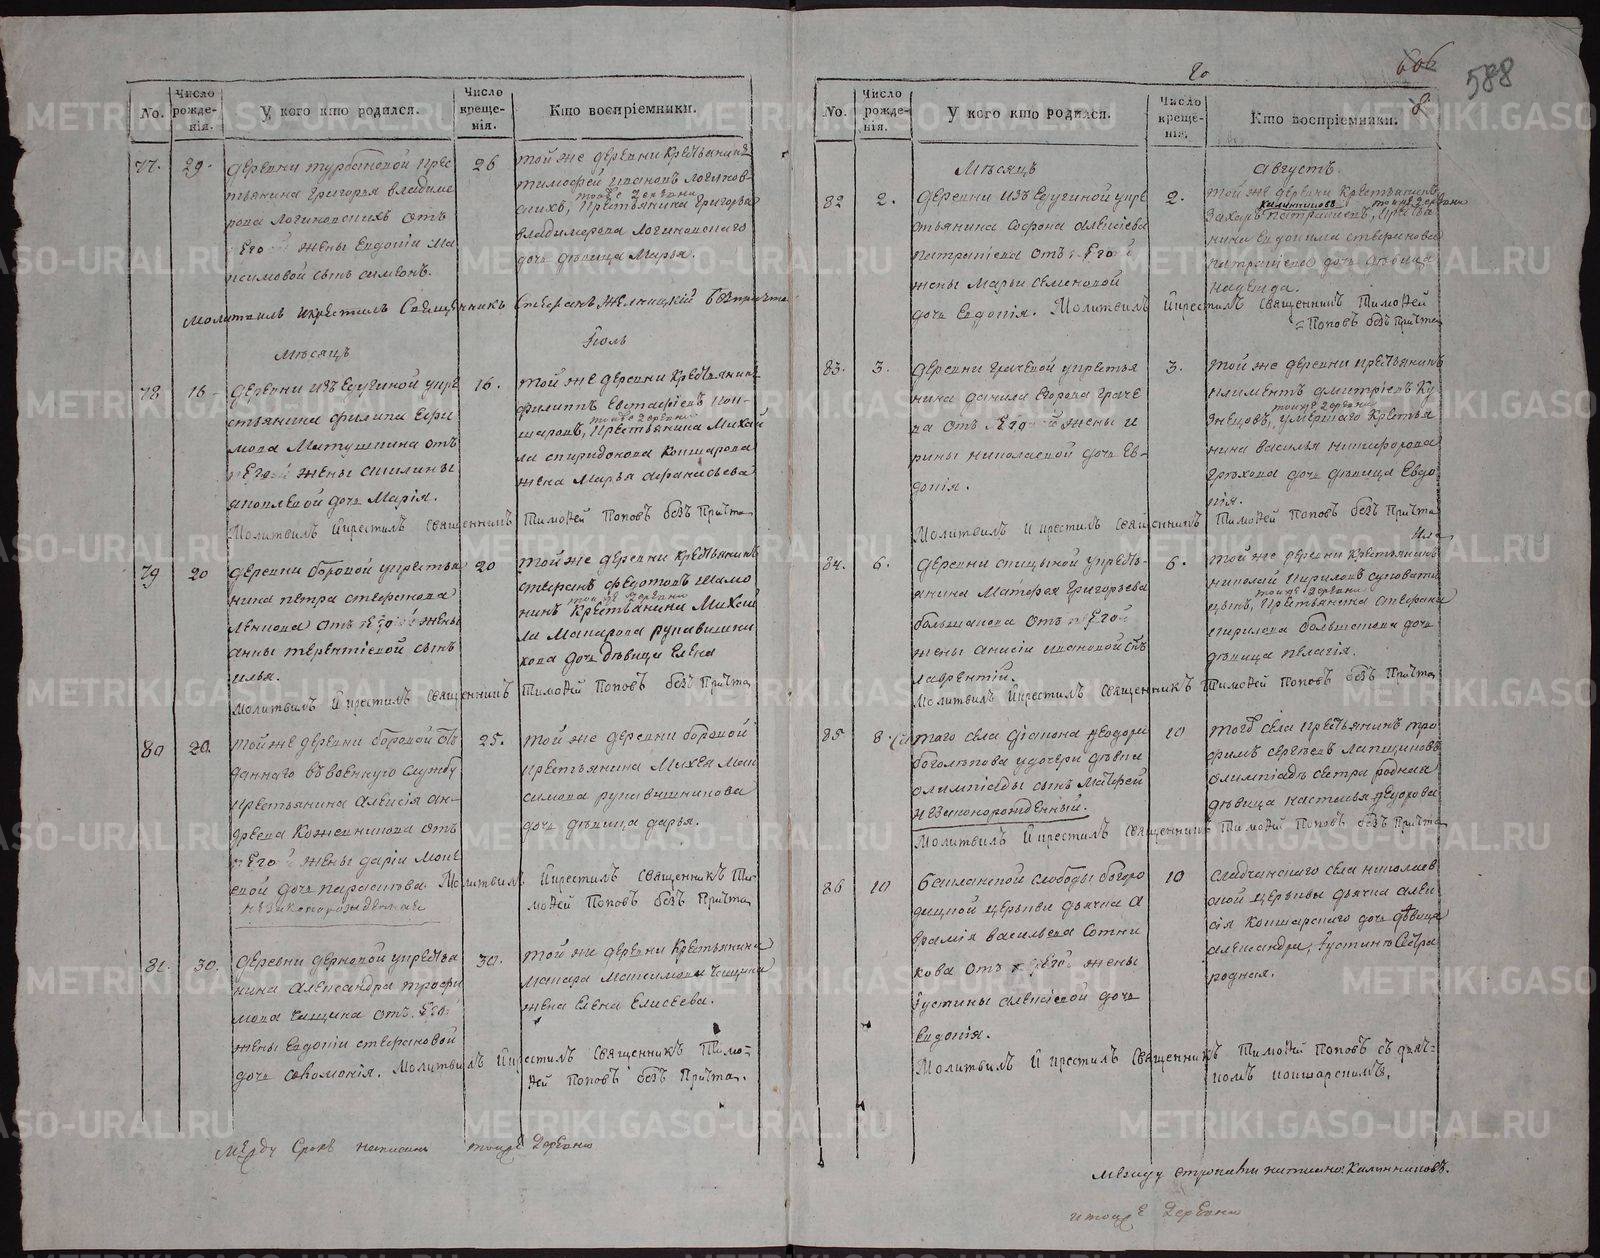 20
606
588
8
No.
Число рожде-нія.
У кого кто родился.
Число креще-нія.
Кто воспріемники.
77.
29.
деревни
тьянина Григорья владиме
рова Логиновскихъ отъ
Его жены Евдокіи Ма
ксимовой сынъ симеонъ.
26
той же деревни крестьянинъ
тимофей ивановъ логинов
тоиже деревни
скихъ, крестьянина григорья
владимерова логиновскаго
дочь дѣвица Марья.
Молитвилъ икрестилъ Священникъ Стефанъ безъ причта
Мѣсяцъ
Іюль
78
16
деревни изъедугиной укре
стьянина филипа Ефи
мова Матушкина отъ
Его жены
дочь Марія.
16.
той же деревни крестьянинъ
филиппъ Евстафіевъ кок-
тоиже деревни
шаровъ, крестьянина Михай
ла спиридонова Кокшарова
жена Марья афанасьева
Молитвилъ Икрестилъ священникъ Тимоѳей Поповъ безъ Причта
79
20
деревни боровой укрестья
нина петра стефанова
отъ Его жены
анны терентіевой сынъ
илья.
20
той же деревни крестьянинъ
стефанъ федотовъ шамо
тоиже деревни
нинъ крестьянина Михай
ла Макарова рукавишни
кова дочь дѣвица Елена
Молитвилъ Икрестилъ священникъ Тимоѳей Поповъ безъ Причта
80
20.
той же деревни боровой от
даннаго въ военную службу
крестьянина алексія ан-
дреева Кожевникова отъ
Его жены даріи Моисе
евой дочь параскева.
незаконорожденная
25.
той же деревни боровой
крестьянина Михея Мак
симова рукавишникова
дочь дѣвица дарья.
Молитвилъ Икрестилъ священникъ Ти-
моѳей Поповъ безъ Причта
81.
30.
деревни дерновой укрестья
нина александра трофи
мова Чащина отъ Его
жены Евдокіи стефановой
дочь соломонія.
30.
той же деревни крестьянина
макара Максимова Чащина
жена Елена Елисеева.
Молитвилъ Икрестилъ священникъ Тимо-
ѳей Поповъ безъ Причта.
Между строкъ написано тоиже деревни
No.
Число рожде-нія.
У кого кто родился.
Число креще-нія.
Кто воспріемники.
Мѣсяцъ
августъ.
82
2.
деревни изъедугиной укре
стьянина софона алексіева
патракіева отъ Его
жены Марьи семеновой
дочь Евдокія.
2.
той же деревни крестьянинъ
калинниковъ тоиже деревни
Захаръ патракіевъ, крестья
нина Евдокима стефанова
патракіева дочь дѣвица
надежда.
Молитвилъ Икрестилъ священникъ Тимоѳей
Поповъ безъ Причта
83.
3.
деревни грачевой укрестья
нина данила Егорова граче
ва отъ Его жены и
рины николаевой дочь Ев-
докія.
3.
той же деревни крестьянинъ
климентъ дмитріевъ Ку
тоиже деревни
знецовъ, умершаго крестья
нина василья никифорова
Грехова дочь дѣвица Евдо
кія.
Молитвилъ Икрестилъ священникъ Тимоѳей Поповъ безъ Причта
84.
6.
деревни спицыной укресть-
янина Матфея Григорьева
большакова отъ Его
жены анисіи ивановой сынъ
лаврентій.
6.
той же деревни крестьянинъ
николай кириловъ суповати
тоиже деревни
цынъ, крестьянина стефана
кирилова большакова дочь
дѣвица пелагія.
Молитвилъ Икрестилъ священникъ Тимоѳей Поповъ безъ Причта
85
8
того села діакона ѳеодора
боголепова у дочери дѣвки
олимпіады сынъ Матфей
незаконорожденный.
10
того села крестьянинъ тро
фимъ сергѣевъ лапшиновъ
олимпіадъ сестра родная
дѣвица настасья ѳеодорова
Молитвилъ Икрестилъ священникъ Тимоѳей Поповъ безъ Причта
86
10
баклановской слободы богоро
дицкой церькви дьячка а
врамія васильева Сотни
кова отъ Его жены
Іустины алексіевой дочь
Евдокія.
10
села николаев
ской церькви дьячка алек
сія Кокшарскаго дочь дѣвица
александра, Іустинѣ Сестра
родная.
Молитвилъ Икрестилъ священникъ Тимоѳей Поповъ съ дьяч-
комъ кокшарскимъ.
между строками написано: Калинниковъ.
итоиже деревни
METRIKI.GASO-URAL.RU